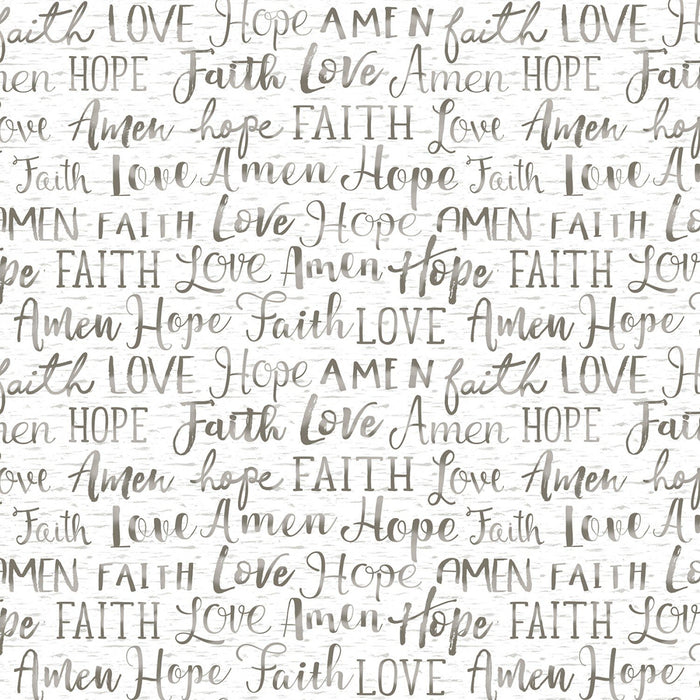 faith LOVE Hope AMEN faith LOVE H
men HOPE Faith Love Amen HOPE Fait
ove Amen hope FAITH Love Amen hop
Faith Love Amen Hope Faith Love A
AMEN FAITH Love Hope AMEN FAITH L
pe FAITH Love Amen Hope FAITH Lov
Amen Hope Faith LOVE Amen Hope
faith LOVE Hope AMEN faith LOVE H
men HOPE Faith Love Amen HOPE Fait
ove Amen hope FAITH Love Amen hop
Faith Love Amen Hope Faith Love A
AMEN FAITH Love Hope AMEN FAITH L
pe FAITH Love Amen Hope FAITH Lov
Amen Hope Faith LOVE Amen Hope